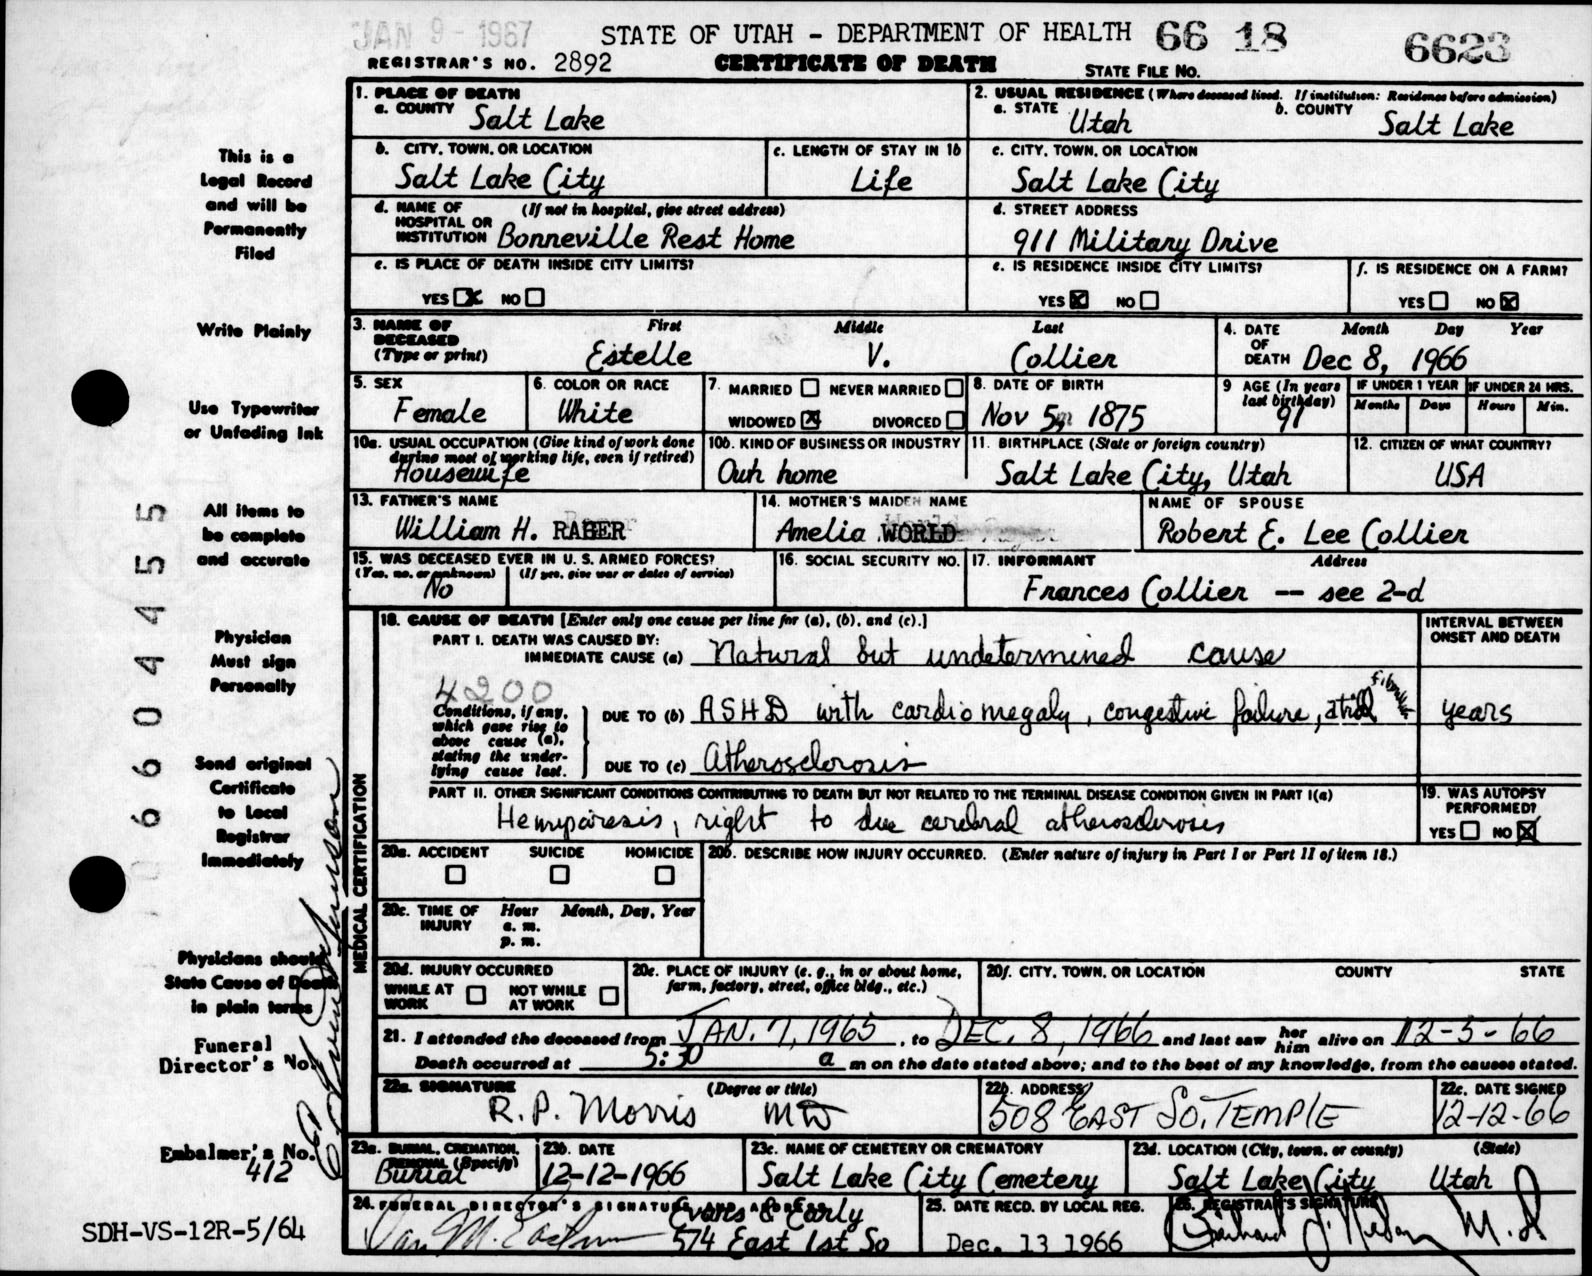 JAN 9 - 1967
STATE OF UTAH - DEPARTMENT OF HEALTH 66 18 6623
REGISTRAR'S NO. 2892 CERTIFICATE OF DEATH STATE FILE NO.
1. PLACE OF DEATH
a. COUNTY Salt Lake
2. USUAL RESIDENCE (Where deceased lived. If institution: Residence before admission)
a. STATE Utah b. COUNTY Salt Lake
b. CITY, TOWN, OR LOCATION Salt Lake City
c. LENGTH OF STAY IN 1b Life
c. CITY, TOWN, OR LOCATION Salt Lake City
d. NAME OF HOSPITAL OR INSTITUTION (If not in hospital, give street address) Bonneville Rest Home
d. STREET ADDRESS 911 Military Drive
e. IS PLACE OF DEATH INSIDE CITY LIMITS?
YES X NO
e. IS RESIDENCE INSIDE CITY LIMITS?
YES X NO
f. IS RESIDENCE ON A FARM?
YES NO X
3. NAME OF DECEASED (Type or print) First Middle Last
Estelle V. Collier
4. DATE OF DEATH Month Day Year
Dec 8, 1966
5. SEX Female
6. COLOR OR RACE White
7. MARRIED NEVER MARRIED
WIDOWED X DIVORCED
8. DATE OF BIRTH Nov 5, 1875
9 AGE (In years last birthday) 91
IF UNDER 1 YEAR Months Days
IF UNDER 24 HRS. Hours Min.
10a. USUAL OCCUPATION (Give kind of work done during most of working life, even if retired)
Housewife
10b. KIND OF BUSINESS OR INDUSTRY
Own home
11. BIRTHPLACE (State or foreign country)
Salt Lake City, Utah
12. CITIZEN OF WHAT COUNTRY?
USA
13. FATHER'S NAME
William H. RABER
14. MOTHER'S MAIDEN NAME
Amelia WORLD
NAME OF SPOUSE
Robert E. Lee Collier
15. WAS DECEASED EVER IN U. S. ARMED FORCES?
(Yes, no, or unknown) (If yes, give war or dates of service)
No
16. SOCIAL SECURITY NO.
17. INFORMANT Address
Frances Collier -- see 2-d
18. CAUSE OF DEATH [Enter only one cause per line for (a), (b), and (c).]
PART I. DEATH WAS CAUSED BY:
IMMEDIATE CAUSE (a) Natural but undetermined cause
INTERVAL BETWEEN ONSET AND DEATH
4200
Conditions, if any, which gave rise to above cause (a), stating the underlying cause last.
DUE TO (b) ASHD with cardiomegaly, congestive failure, atrial years
DUE TO (c) Atherosclerosis
PART II. OTHER SIGNIFICANT CONDITIONS CONTRIBUTING TO DEATH BUT NOT RELATED TO THE TERMINAL DISEASE CONDITION GIVEN IN PART I(a)
Hemiparesis, right to due cerebral atherosclerosis
19. WAS AUTOPSY PERFORMED?
YES NO X
MEDICAL CERTIFICATION
20a. ACCIDENT SUICIDE HOMICIDE
20b. DESCRIBE HOW INJURY OCCURRED. (Enter nature of injury in Part I or Part II of item 18.)
20c. TIME OF INJURY Hour Month, Day, Year
a. m.
p. m.
20d. INJURY OCCURRED
WHILE AT WORK NOT WHILE AT WORK
20e. PLACE OF INJURY (e. g., in or about home, farm, factory, street, office bldg., etc.)
20f. CITY, TOWN, OR LOCATION COUNTY STATE
21. I attended the deceased from JAN. 7, 1965, to DEC. 8, 1966 and last saw her him alive on 12-5-66
Death occurred at 5:30 a m on the date stated above; and to the best of my knowledge, from the causes stated.
22a. SIGNATURE (Degree or title)
R. P. Morris MD
22b. ADDRESS
508 EAST SO. TEMPLE
22c. DATE SIGNED
12-12-66
23a. BURIAL, CREMATION, REMOVAL (Specify)
Burial
23b. DATE
12-12-1966
23c. NAME OF CEMETERY OR CREMATORY
Salt Lake City Cemetery
23d. LOCATION (City, town, or county) (State)
Salt Lake City Utah
24. FUNERAL DIRECTOR'S SIGNATURE AND ADDRESS
Evans & Early
574 East 1st So
25. DATE RECD. BY LOCAL REG.
Dec. 13 1966
26. REGISTRAR'S SIGNATURE
M. D
This is a
Legal Record
and will be
Permanently
Filed
Write Plainly
Use Typewriter
or Unfading Ink
All items to
be complete
and accurate
Physician
Must sign
Personally
Send original
Certificate
to Local
Registrar
Immediately
Physicians should
State Cause of Death
in plain terms
Funeral
Director's No.
Embalmer's No.
412
SDH-VS-12R-5/64
0 6 6 0 4 4 5 5